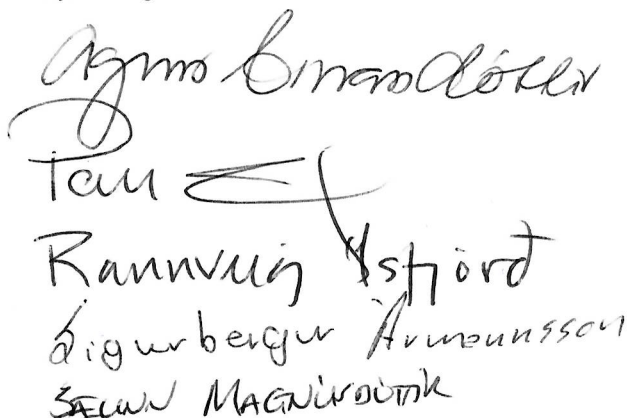 Agnes Einarsdóttir
Páll
Rannveig Ísfjörð
Sigurbergur Ármannsson
SÆUNN MAGNÚSDÓTTIR